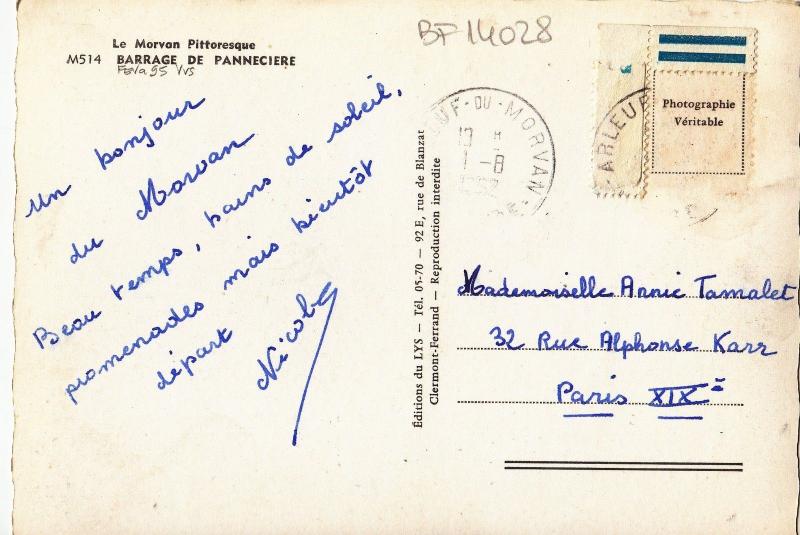 BF14028
Le Morvan Pittoresque
M514 BARRAGE DE PANNECIERE
Un bonjour
du Morvan
Beau temps, bains de soleil,
promenades mais bientôt
départ
Nicole
Éditions du LYS — Tél. 05-70 — 92 E, rue de Blanzat
Clermont-Ferrand — Reproduction interdite
UF-DU-MORVAN
13 H
1-8
ARLEUF
Photographie
Véritable
Mademoiselle Annie Tamalet
32 Rue Alphonse Karr
Paris XIXe